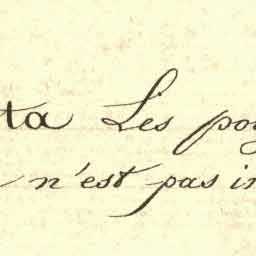 ta Les po
n'est pas in